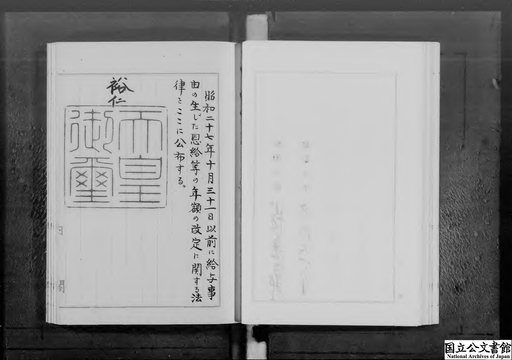 昭和二十七年十月三十一日以前に給与事
由の生じた恩給等の年額の改定に関する法
律をここに公布する。
裕仁
天皇
御璽
国立公文書館
National Archives of Japan